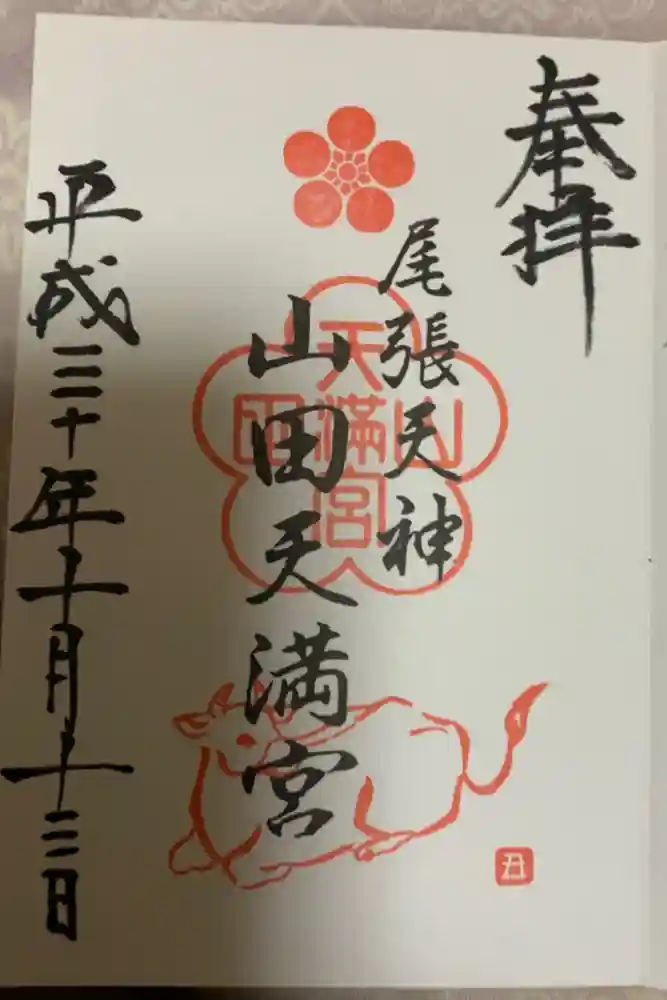 奉拝
尾張天神
山田天満宮
平成三十年十月十三日
山田天満宮
丑